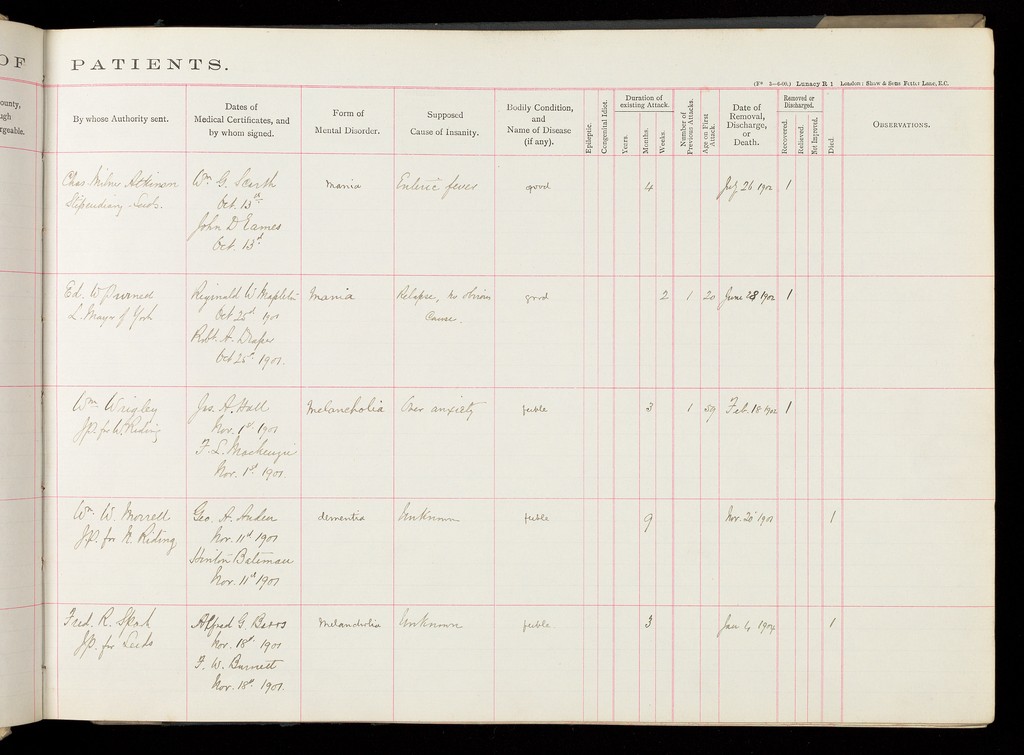 OF
PATIENTS.
Lunacy R 1 London: Shaw & Sons Fetter Lane, E.C.
ounty,
ugh
rgeable.
By whose Authority sent.
Dates of
Medical Certificates, and
by whom signed.
Form of
Mental Disorder.
Supposed
Cause of Insanity.
Bodily Condition,
and
Name of Disease
(if any).
Epileptic.
Congenital Idiot.
Duration of
existing Attack.
Years.
Months.
Weeks.
Number of
Previous Attacks.
Age on First
Attack.
Date of
Removal,
Discharge,
or
Death.
Removed or
Discharged.
Recovered.
Relieved.
Not Improved.
Died.
Observations.
Chas Milner Atkinson
Stipendiary Leeds.
Wm. G. Scarth
Oct. 13th
John D Eames
Oct. 13th
Mania
Enteric fever
good
4
July 26 1902
1
Ed. W Purnell
L. Mayor of York
Reginald W Mapleton
Oct 25th 1901
Robt. A. Draper
Oct 25th 1901.
Mania
Relapse, no obvious
Cause.
good
2
1
20
June 28 1902
1
Wm Wrigley
JP. for W. Riding
Jas. A. Hall
Nov. 1st 1901
F. L. Mackenzie
Nov. 1st 1901.
Melancholia
Over anxiety
feeble
3
1
59
Feb. 18 1902
1
Wm. W. Morrell
JP. for N. Riding
Geo. A. Auden
Nov. 11th 1901
Hinton Bateman
Nov. 11th 1901
dementia
Unknown
feeble
9
Nov. 20 1901
1
Fred. R. Spark
JP. for Leeds
Alfred G.
Nov. 18th 1901
F. W. Burnett
Nov. 18th 1901.
Melancholia
Unknown
feeble
3
Jan 4 1904
1